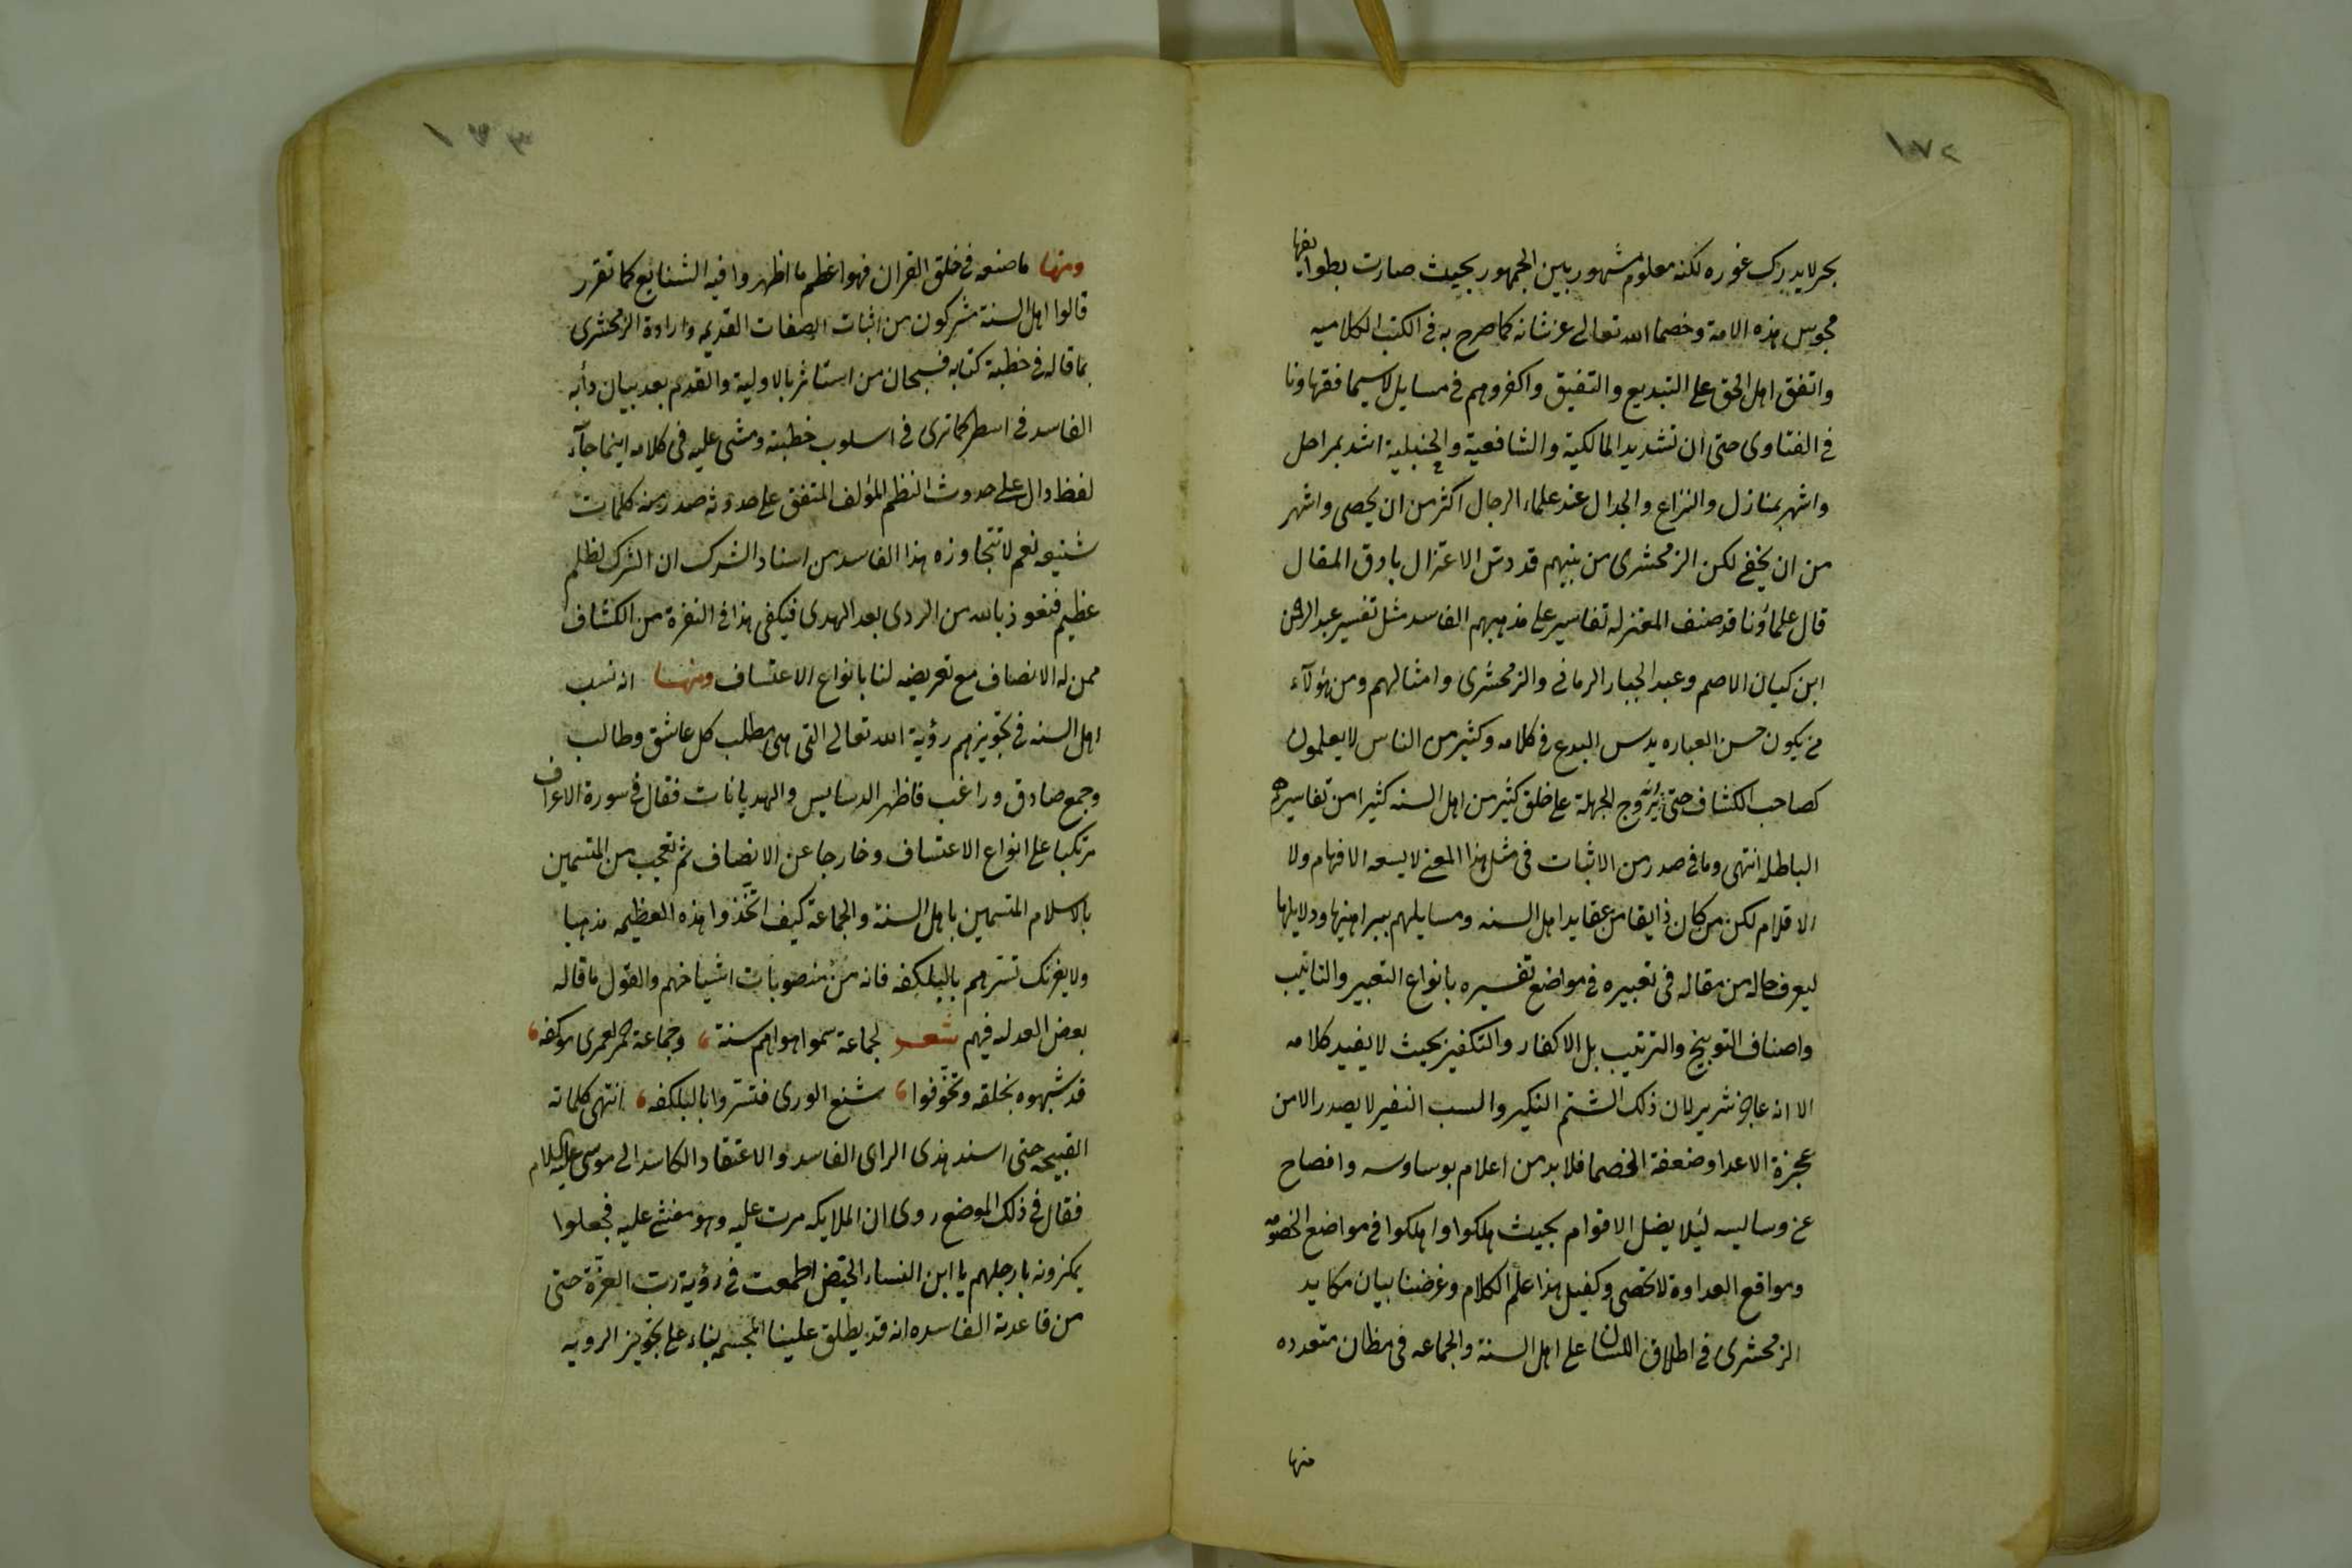 ١٧٢
بحر لا يدرك غوره لكنه معلوم مشهور بين الجمهور بحيث صارت بطوايفها
مجوس هذه الامة وخصما الله تعالى عز شانه كما صرح به فى الكتب الكلاميه
واتفق اهل الحق على التبديع والتفيق واكفروهم فى مسايل لا سيما فقهاونا
فى الفتاوى حتى ان تشديد المالكية والشافعية والحنبلية اشد بمراحل
واشهر بمنازل والنزاع والجدال عند علماء الرجال اكثر من ان يحصى واشهر
من ان يخفى لكن الزمخشرى من بينهم قد دس الاعتزال بادق المقال
قال علماؤنا قد صنف المعتزله تفاسير على مذهبهم الفاسد مثل تفسير عبد الرحمن
ابن كيان الاصم وعبد الجبار الرمانى والزمخشرى وامثالهم ومن هؤلآء
من يكون حسن العباره يدس البدع فى كلامه وكثير من الناس لا يعلمون
كصاحب الكشاف حتى انه يروج الجهلة على خلق كثير من اهل السنه كثيرا من تفاسيرهم
الباطله انتهى وما فى صدر من الاثبات فى مثل هذا المعنى لا يسعه الافهام ولا
الاقلام لكن من كان ذايقا من عقايد اهل السنه ومسايلهم ببراهينها ودلايلها
ليعرف حاله من مقاله فى تعبيره فى مواضع تفسيره بانواع التعبير والتانيب
واصناف التوبيخ والترتيب بل الاكفار والتكفير بحيث لا يفيد كلامه
الا انه عاجز شرير لان ذلك الشتم النكير والسب النفير لا يصدر الا من
عجزة الاعدا وضعفة الخصما فلا بد من اعلام بوساوسه وافصاح
عن وساليسه ليلا يضل الاقوام بحيث هلكوا واهلكوا فى مواضع الخصومه
ومواقع العداوة لا تحصى وكفيل هذا علم الكلام وغرضنا بيان مكايد
الزمخشرى فى اطلاق اللسان على اهل السنة والجماعه فى مظان متعدده
منها
١٧٣
ومنها ما صنعه فى خلق القران فهو اعظم ما اظهروا فيه الشنايع كما تقرر
قالوا اهل السنة مشركون من اثبات الصفات القديمه وارادة الزمخشرى
بما قاله فى خطبة كتابه فسبحان من استاثر بالاولية والقدم بعد بيان دأبه
الفاسد فى اسطر كما ترى فى اسلوب خطبته ومشى عليه فى كلامه اينما جآء
لفظ دال على حدوث النظم المؤلف المتفق على حدوثه صدر منه كلمات
شنيعه نعم لا تتجاوزه هذا الفاسد من اسناد الشرك ان الشرك لظلم
عظيم فنعوذ بالله من الردى بعد الهدى فيكفى هذا فى النفرة من الكشاف
ممن له الانصاف مع تعريضه لنا بانواع الاعتساف ومنها انه نسب
اهل السنه فى تجويزهم رؤية الله تعالى التى هى مطلب كل عاشق وطالب
وجمع صادق وراغب فاظهر الدسايس والهديانات فقال فى سورة الاعراف
مرتكبا على انواع الاعتساف وخارجا عن الانصاف ثم تعجب من المتسمين
بالاسلام المتسمين باهل السنة والجماعة كيف اتخذوا هذه العظيمه مذهبا
ولا يغرنك تسترهم بالبلكفه فانه من منصوبات اشياخهم والقول ما قاله
بعض العدله فيهم شعر لجماعة سموا هواهم سنة ، وجماعة حمر لعمرى موكفه ،
قد شبهوه بخلقه وتخوّفوا ، شنع الورى فتستروا بالبلكفه ، انتهى كلماته
القبيحه حتى اسند هذى الراى الفاسد والاعتقاد الكاسد الى موسى عليه السلام
فقال فى ذلك الموضع روى ان الملايكه مرت عليه وهو مغشى عليه فجعلوا
يمكزونه بارجلهم يا ابن النساء الحيّض اطمعت فى رؤية ربّ العزّة حتى
من قاعدته الفاسده انه قد يطلق علينا المجسمه بناء على تجويز الرويه